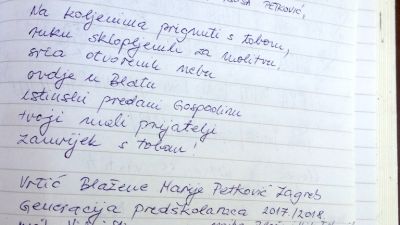 PETKOVIĆ,
Na koljenima prignuti s tobom,
ruku sklopljenih za molitvu
srca otvorenih nebu
ovdje u Blatu
istinski predani Gospodinu
tvoji mali prijatelji
zauvijek s tobom!
Vrtić Blažene Marije Petković Zagreb
Generacija predškolaraca 2017/2018